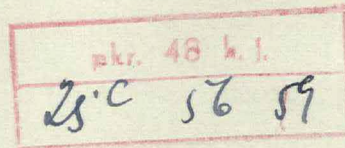 pkr. 48 k. j.
25°C 56 59